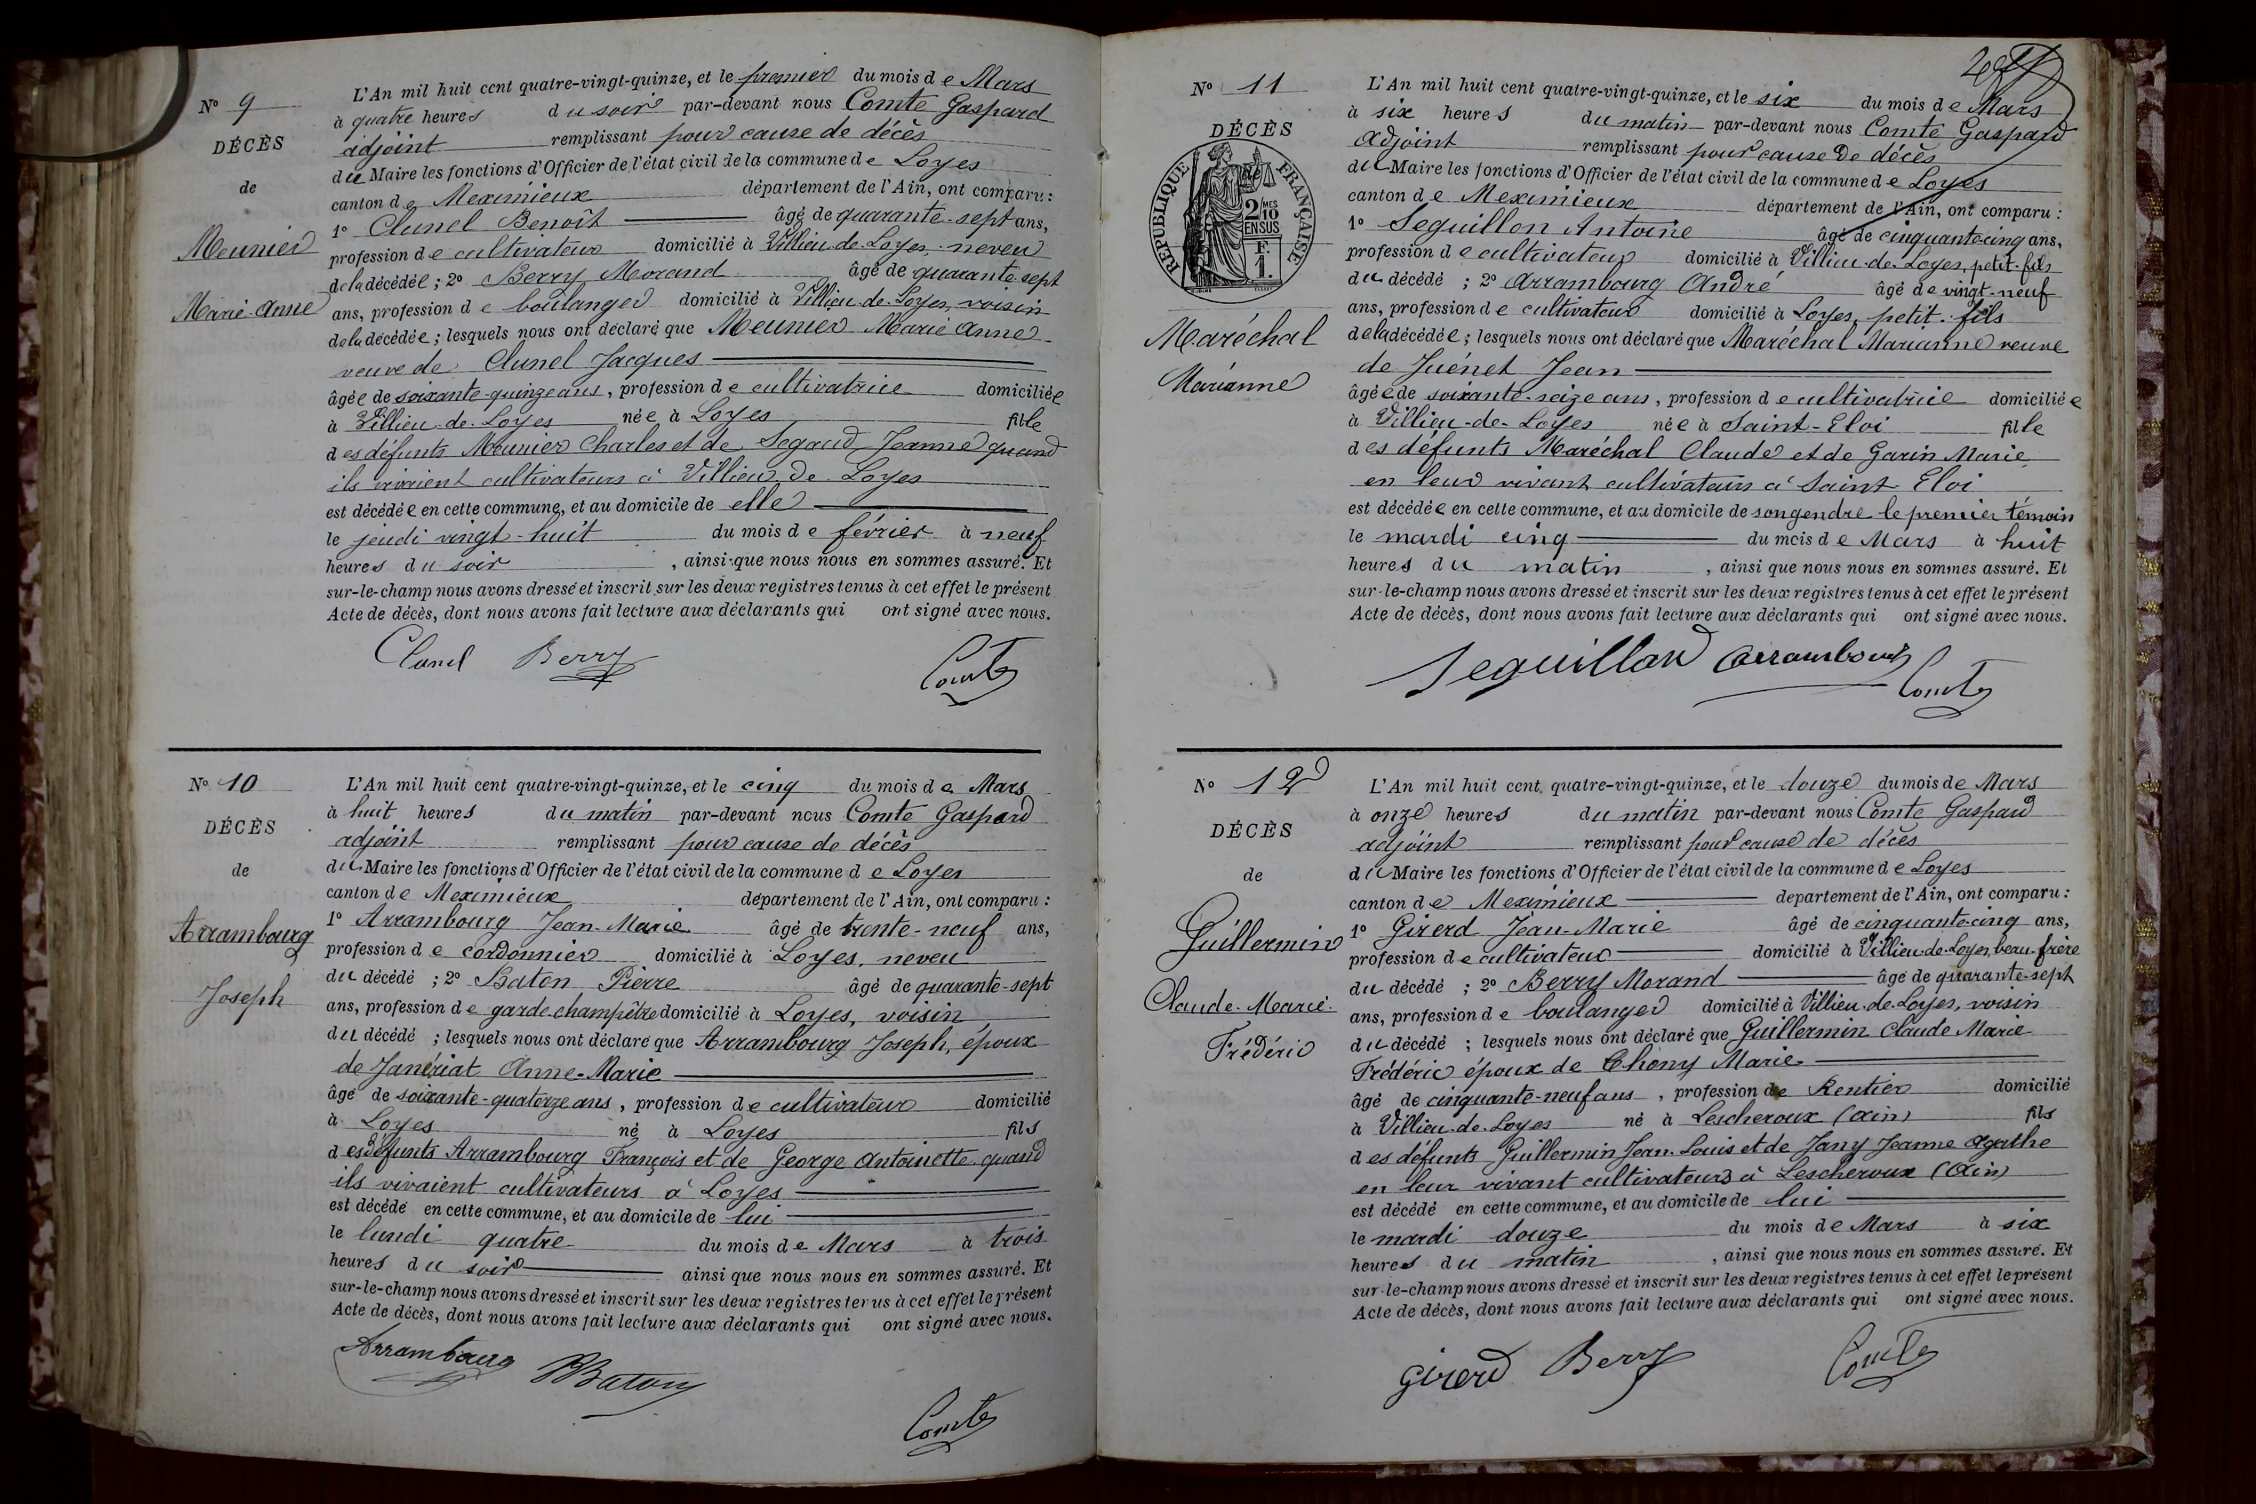 L'An mil huit cent quatre-vingt-quinze, et le premier du mois de Mars
N° 9
à quatre heures du soir par-devant nous Comte Gaspard
DÉCÈS
adjoint remplissant pour cause de décès
du Maire les fonctions d'Officier de l'état civil de la commune de Loyes
de
canton de Meximieux département de l'Ain, ont comparu :
1° Clunel Benoît âgé de quarante-sept ans,
Meunier
profession de cultivateur domicilié à Villieu-de-Loyes, neveu
de la décédée ; 2° Berry Morand âgé de quarante-sept
Marie-Anne
ans, profession de boulanger domicilié à Villieu-de-Loyes, voisin
de la décédée ; lesquels nous ont déclaré que Meunier Marie Anne
veuve de Clunel Jacques
âgée de soixante-quinze ans, profession de cultivatrice domiciliée
à Villieu-de-Loyes née à Loyes fille
des défunts Meunier Charles et de Segaud Jeanne quand
ils vivaient cultivateurs à Villieu-de-Loyes
est décédée en cette commune, et au domicile de elle
le jeudi vingt-huit du mois de février à neuf
heures du soir, ainsi que nous nous en sommes assuré. Et
sur-le-champ nous avons dressé et inscrit sur les deux registres tenus à cet effet le présent
Acte de décès, dont nous avons fait lecture aux déclarants qui ont signé avec nous.
Clunel Berry Comte
N° 10
L'An mil huit cent quatre-vingt-quinze, et le cinq du mois de Mars
à huit heures du matin par-devant nous Comte Gaspard
DÉCÈS
adjoint remplissant pour cause de décès
de
du Maire les fonctions d'Officier de l'état civil de la commune de Loyes
canton de Meximieux département de l'Ain, ont comparu :
Arrambourg
1° Arrambourg Jean-Marie âgé de trente-neuf ans,
profession de cordonnier domicilié à Loyes, neveu
Joseph
du décédé ; 2° Baton Pierre âgé de quarante-sept
ans, profession de garde-champêtre domicilié à Loyes, voisin
du décédé ; lesquels nous ont déclaré que Arrambourg Joseph, époux
de Janériat Anne-Marie
âgé de soixante-quatorze ans, profession de cultivateur domicilié
à Loyes né à Loyes fils
des défunts Arrambourg François et de George Antoinette quand
ils vivaient cultivateurs à Loyes
est décédé en cette commune, et au domicile de lui
le lundi quatre du mois de Mars à trois
heures du soir ainsi que nous nous en sommes assuré. Et
sur-le-champ nous avons dressé et inscrit sur les deux registres tenus à cet effet le présent
Acte de décès, dont nous avons fait lecture aux déclarants qui ont signé avec nous.
Arrambourg Baton
Comte
N° 11
L'An mil huit cent quatre-vingt-quinze, et le six du mois de Mars
à six heures du matin par-devant nous Comte Gaspard
DÉCÈS
adjoint remplissant pour cause de décès
du Maire les fonctions d'Officier de l'état civil de la commune de Loyes
RÉPUBLIQUE FRANÇAISE
2 MES
10
EN SUS
F
1.
canton de Meximieux département de l'Ain, ont comparu :
1° Seguillon Antoine âgé de cinquante-cinq ans,
profession de cultivateur domicilié à Villieu-de-Loyes, petit-fils
du décédé ; 2° Arrambourg André âgé de vingt-neuf
ans, profession de cultivateur domicilié à Loyes, petit-fils
Maréchal
de la décédée ; lesquels nous ont déclaré que Maréchal Marianne veuve
Marianne
de Juénet Jean
âgée de soixante-seize ans, profession de cultivatrice domiciliée
à Villieu-de-Loyes née à Saint-Eloi fille
des défunts Maréchal Claude et de Garin Marie
en leur vivant cultivateurs à Saint Eloi
est décédée en cette commune, et au domicile de son gendre le premier témoin
le mardi cinq du mois de Mars à huit
heures du matin, ainsi que nous nous en sommes assuré. Et
sur-le-champ nous avons dressé et inscrit sur les deux registres tenus à cet effet le présent
Acte de décès, dont nous avons fait lecture aux déclarants qui ont signé avec nous.
Seguillon Arrambourg Comte
N° 12
L'An mil huit cent quatre-vingt-quinze, et le douze du mois de Mars
à onze heures du matin par-devant nous Comte Gaspard
DÉCÈS
adjoint remplissant pour cause de décès
de
du Maire les fonctions d'Officier de l'état civil de la commune de Loyes
canton de Meximieux département de l'Ain, ont comparu :
Guillermin
1° Girerd Jean-Marie âgé de cinquante-cinq ans,
profession de cultivateur domicilié à Villieu-de-Loyes, beau-frère
du décédé ; 2° Berry Morand âgé de quarante-sept
Claude-Marie-
ans, profession de boulanger domicilié à Villieu-de-Loyes, voisin
Frédéric
du décédé ; lesquels nous ont déclaré que Guillermin Claude Marie
Frédéric époux de Chony Marie
âgé de cinquante-neuf ans, profession de Rentier domicilié
à Villieu-de-Loyes né à Lescheroux (Ain) fils
des défunts Guillermin Jean-Louis et de Jany Jeanne Agathe
en leur vivant cultivateurs à Lescheroux (Ain)
est décédé en cette commune, et au domicile de lui
le mardi douze du mois de Mars à six
heures du matin, ainsi que nous nous en sommes assuré. Et
sur-le-champ nous avons dressé et inscrit sur les deux registres tenus à cet effet le présent
Acte de décès, dont nous avons fait lecture aux déclarants qui ont signé avec nous.
Girerd Berry Comte